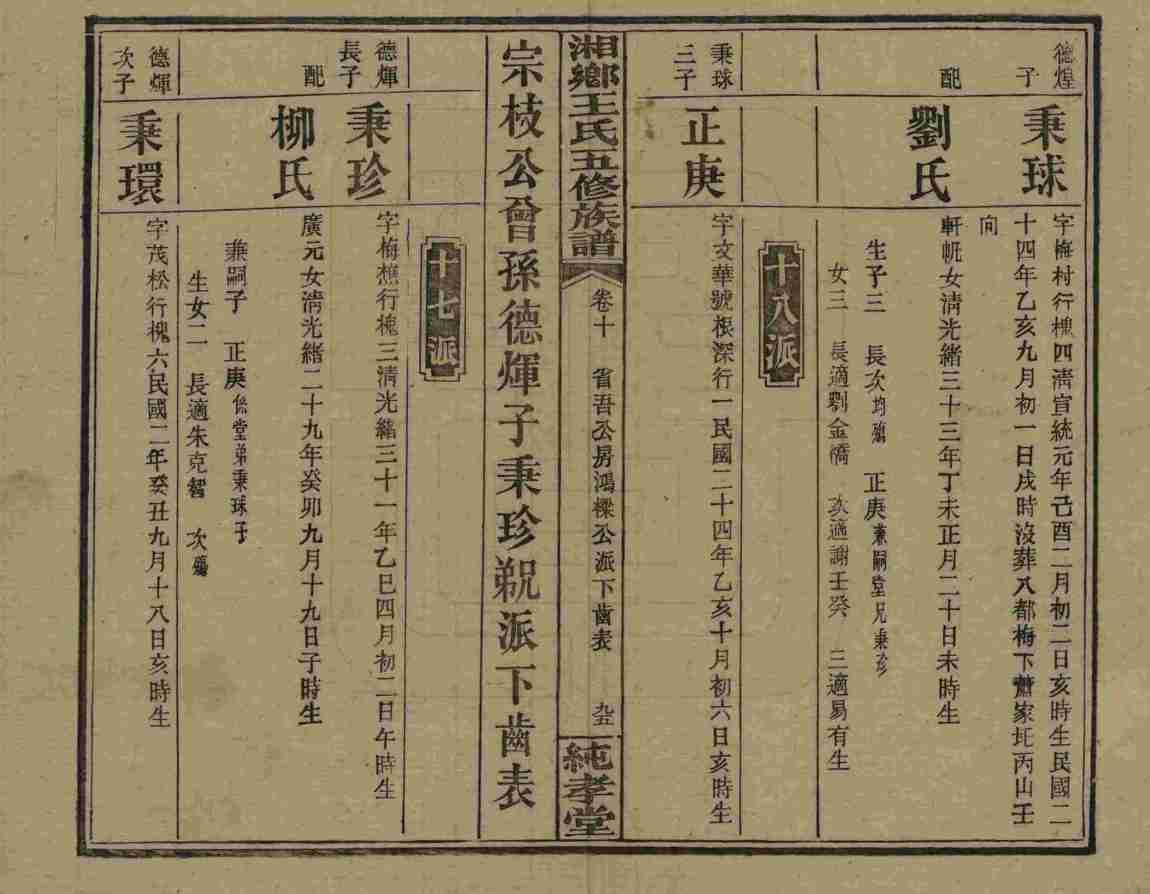 德煌
子
秉球
字梅村行槐四清宣統元年己酉二月初二日亥時生民國二
十四年乙亥九月初一日戌時沒葬八都梅下蕭家圫丙山壬
向
配
劉氏
軒帆女清光緒三十三年丁未正月二十日未時生
生子三 長次均殤 正庚兼嗣堂兄秉珍
女三 長適劉金橋 次適謝壬癸 三適易有生
十八派
秉球
三子
正庚
字文華號根深行一民國二十四年乙亥十月初六日亥時生
湘鄉王氏五修族譜
卷十 省吾公房鴻樑公派下齒表 九五
純孝堂
宗枝公曾孫德煇子秉珍派下齒表
十七派
德煇
長子
秉珍
字梅樵行槐三清光緒三十一年乙巳四月初二日午時生
配
柳氏
廣元女清光緒二十九年癸卯九月十九日子時生
兼嗣子 正庚係堂弟秉球子
生女二 長適朱克智 次殤
德煇
次子
秉環
字茂松行槐六民國二年癸丑九月十八日亥時生